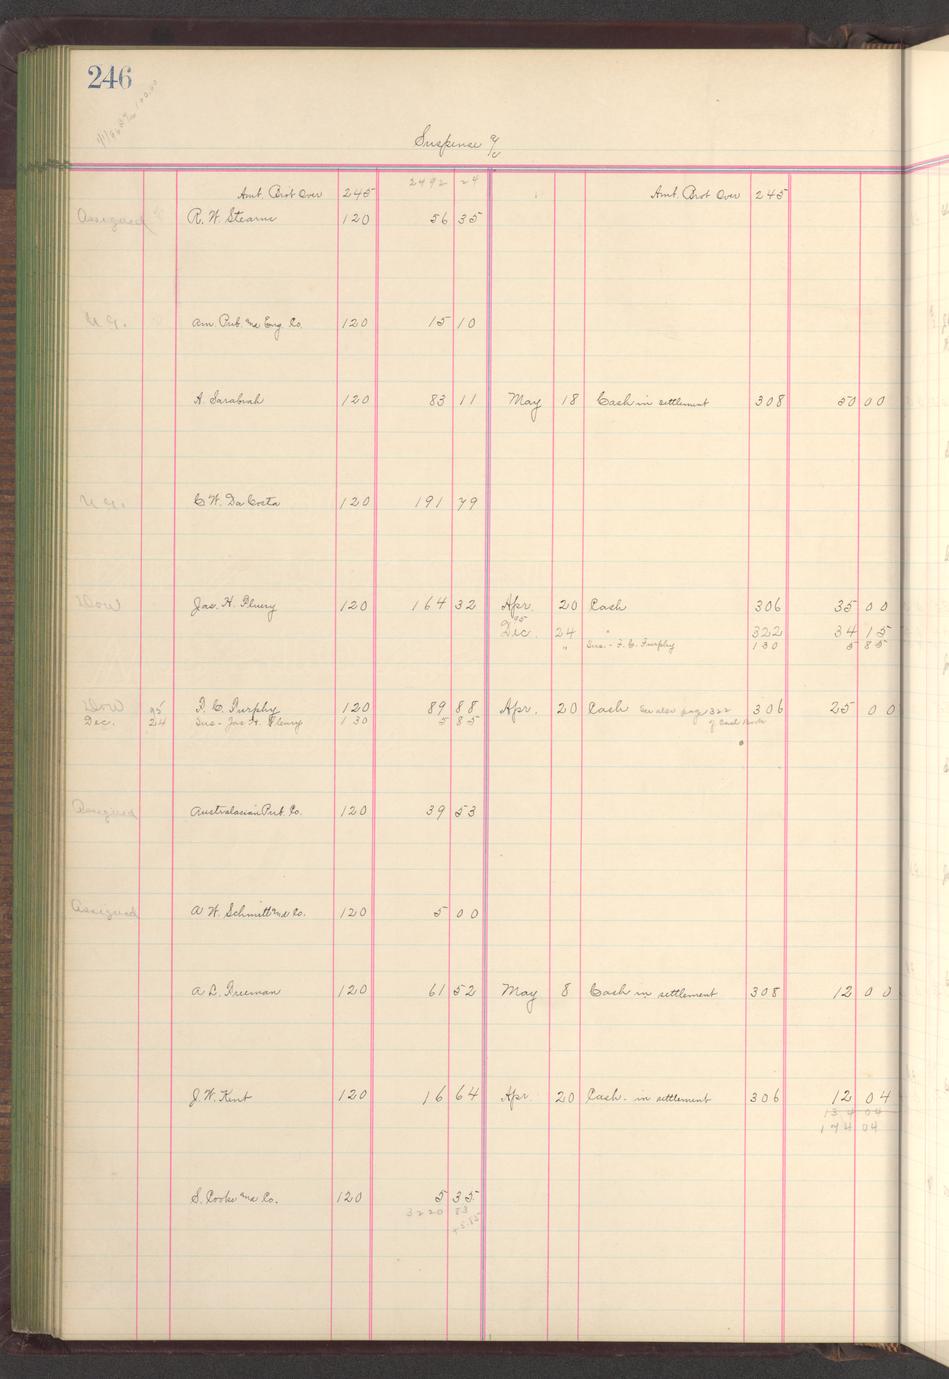 246
Suspense a/c
2492 24
Amt. Brot Over 245 Amt. Brot Over 245
Assigned R. W. Stearns 120 56 35
N. G. Am. Pub. and Eng. Co. 120 15 10
A. Sarabiah 120 83 11 May 18 Cash in settlement 308 50 00
N. G. C. W. Da Costa 120 191 79
Dow Jas. H. Fleury 120 164 32 Apr. 20 Cash 306 35 00
95
Dec. 24 " 322 34 15
" Sus. - F. C. Furphy 130 5 85
Dow 95 F. C. Furphy 120 89 88 Apr. 20 Cash See also page 322 306 25 00
Dec. 24 Sus - Jas. H. Fleury 130 5 85 of Cash Book
Assigned Australasian Pub. Co. 120 39 53
Assigned A. W. Schmitt and Co. 120 5 00
A. L. Freeman 120 61 52 May 8 Cash in settlement 308 12 00
J. W. Kent 120 16 64 Apr. 20 Cash - in settlement 306 12 04
134 04
174 04
S. Cooke and Co. 120 5 35
3220 83
+5.85